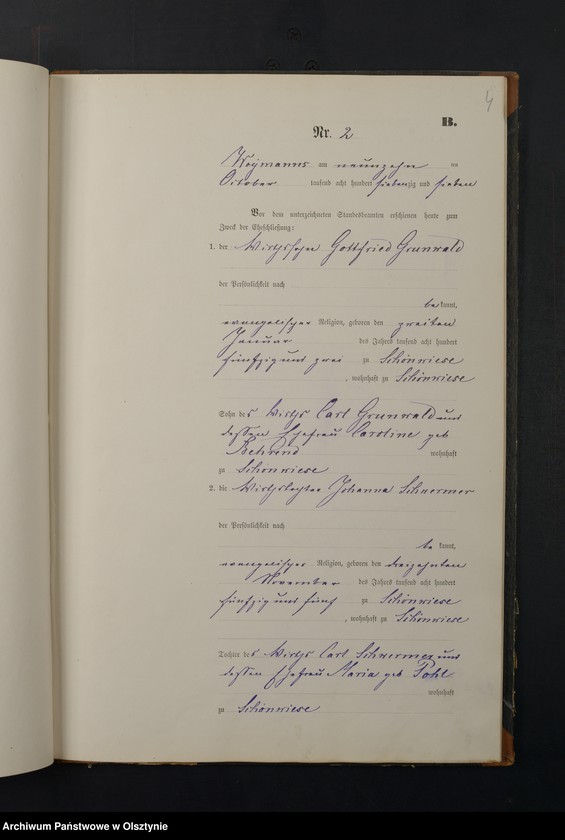 4
B.
Nr. 2
Weymanns am neunzehn ten
October tausend acht hundert siebenzig und sieben
Vor dem unterzeichneten Standesbeamten erschienen heute zum
Zweck der Eheschließung:
1. der Wirthssohn Gottfried Grunwald
der Persönlichkeit nach
be kannt,
evangelischer Religion, geboren den zweiten
Januar des Jahres tausend acht hundert
fünfzig und zwei zu Schönwiese
, wohnhaft zu Schönwiese
Sohn des Wirths Carl Grunwald und
dessen Ehefrau Caroline geb
Behrend wohnhaft
zu Schönwiese
2. die Wirthstochter Johanna Schwermer
der Persönlichkeit nach
be kannt,
evangelischer Religion, geboren den dreizehnten
November des Jahres tausend acht hundert
fünfzig und fünf zu Schönwiese
, wohnhaft zu Schönwiese
Tochter des Wirths Carl Schwermer und
dessen Ehefrau Maria geb Pohl
wohnhaft
zu Schönwiese
Archiwum Państwowe w Olsztynie